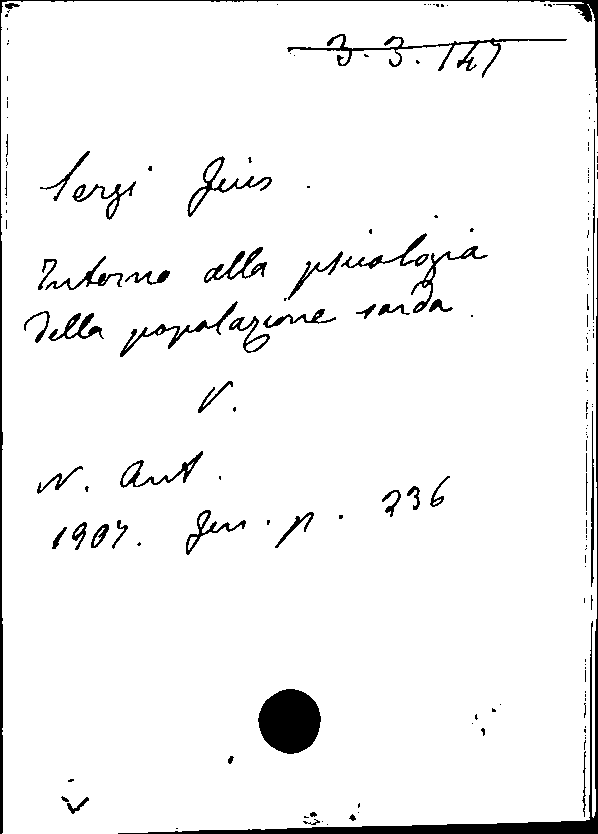 3.3.147
Sergi Gius.
Intorno alla psicologia
della popolazione sarda.
V.
N. Ant.
1907. Gen. p. 236